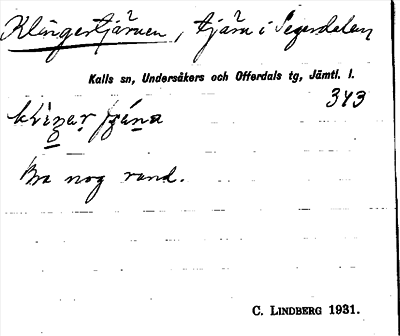 Klingertjärnen, tjärn i Segerdalen
Kalls sn, Undersåkers och Offerdals tg, Jämtl. l.
343
Bra nog rund.
C. LINDBERG 1931.